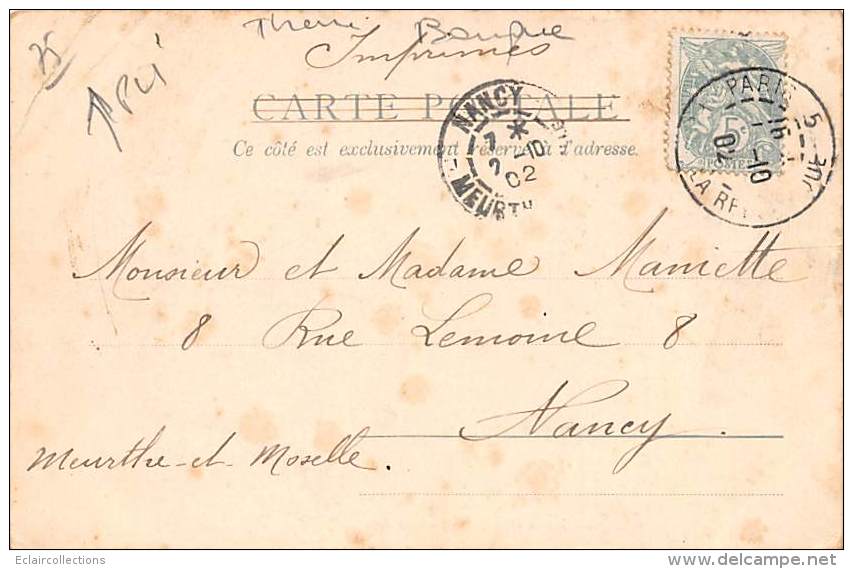 75
Pli
Imprimes
CARTE POSTALE
Ce côté est exclusivement réservé à l'adresse.
NANCY
7
2 -10
02
MEURTH
PARNE
5
16
10
02
LA R
5c
POSTES
Monsieur et Madame Maniette
8 Rue Lemoine 8
Nancy.
Meurthe-et-Moselle.
Eclaircollections
www.delcampe.net